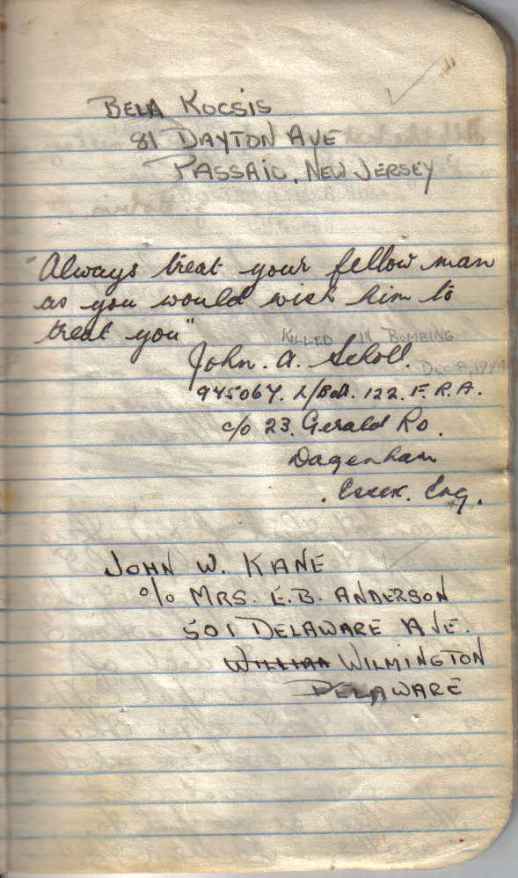 BELA KOCSIS
81 DAYTON AVE
PASSAIC, NEW JERSEY
"Always treat your fellow man
as you would wish him to
treat you"
KILLED IN BOMBING
John. A. Scholl.
DEC 8, 194
945067. L/Bdr. 122. F. R.A.
c/o 23. Gerald Rd.
Dagenham
. Essex. Eng.
JOHN W. KANE
c/o MRS. E.B. ANDERSON
501 DELAWARE AVE.
WILLIAM WILMINGTON
DELAWARE